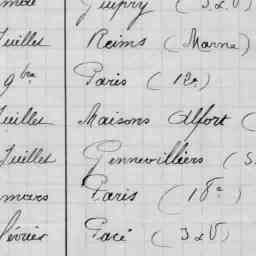 Juillet Reims (Marne)
9bre Paris (12e)
Juillet Maisons Alfort (
Juillet Gennevilliers (S
mars Paris (18e
février Pacé (I & V)